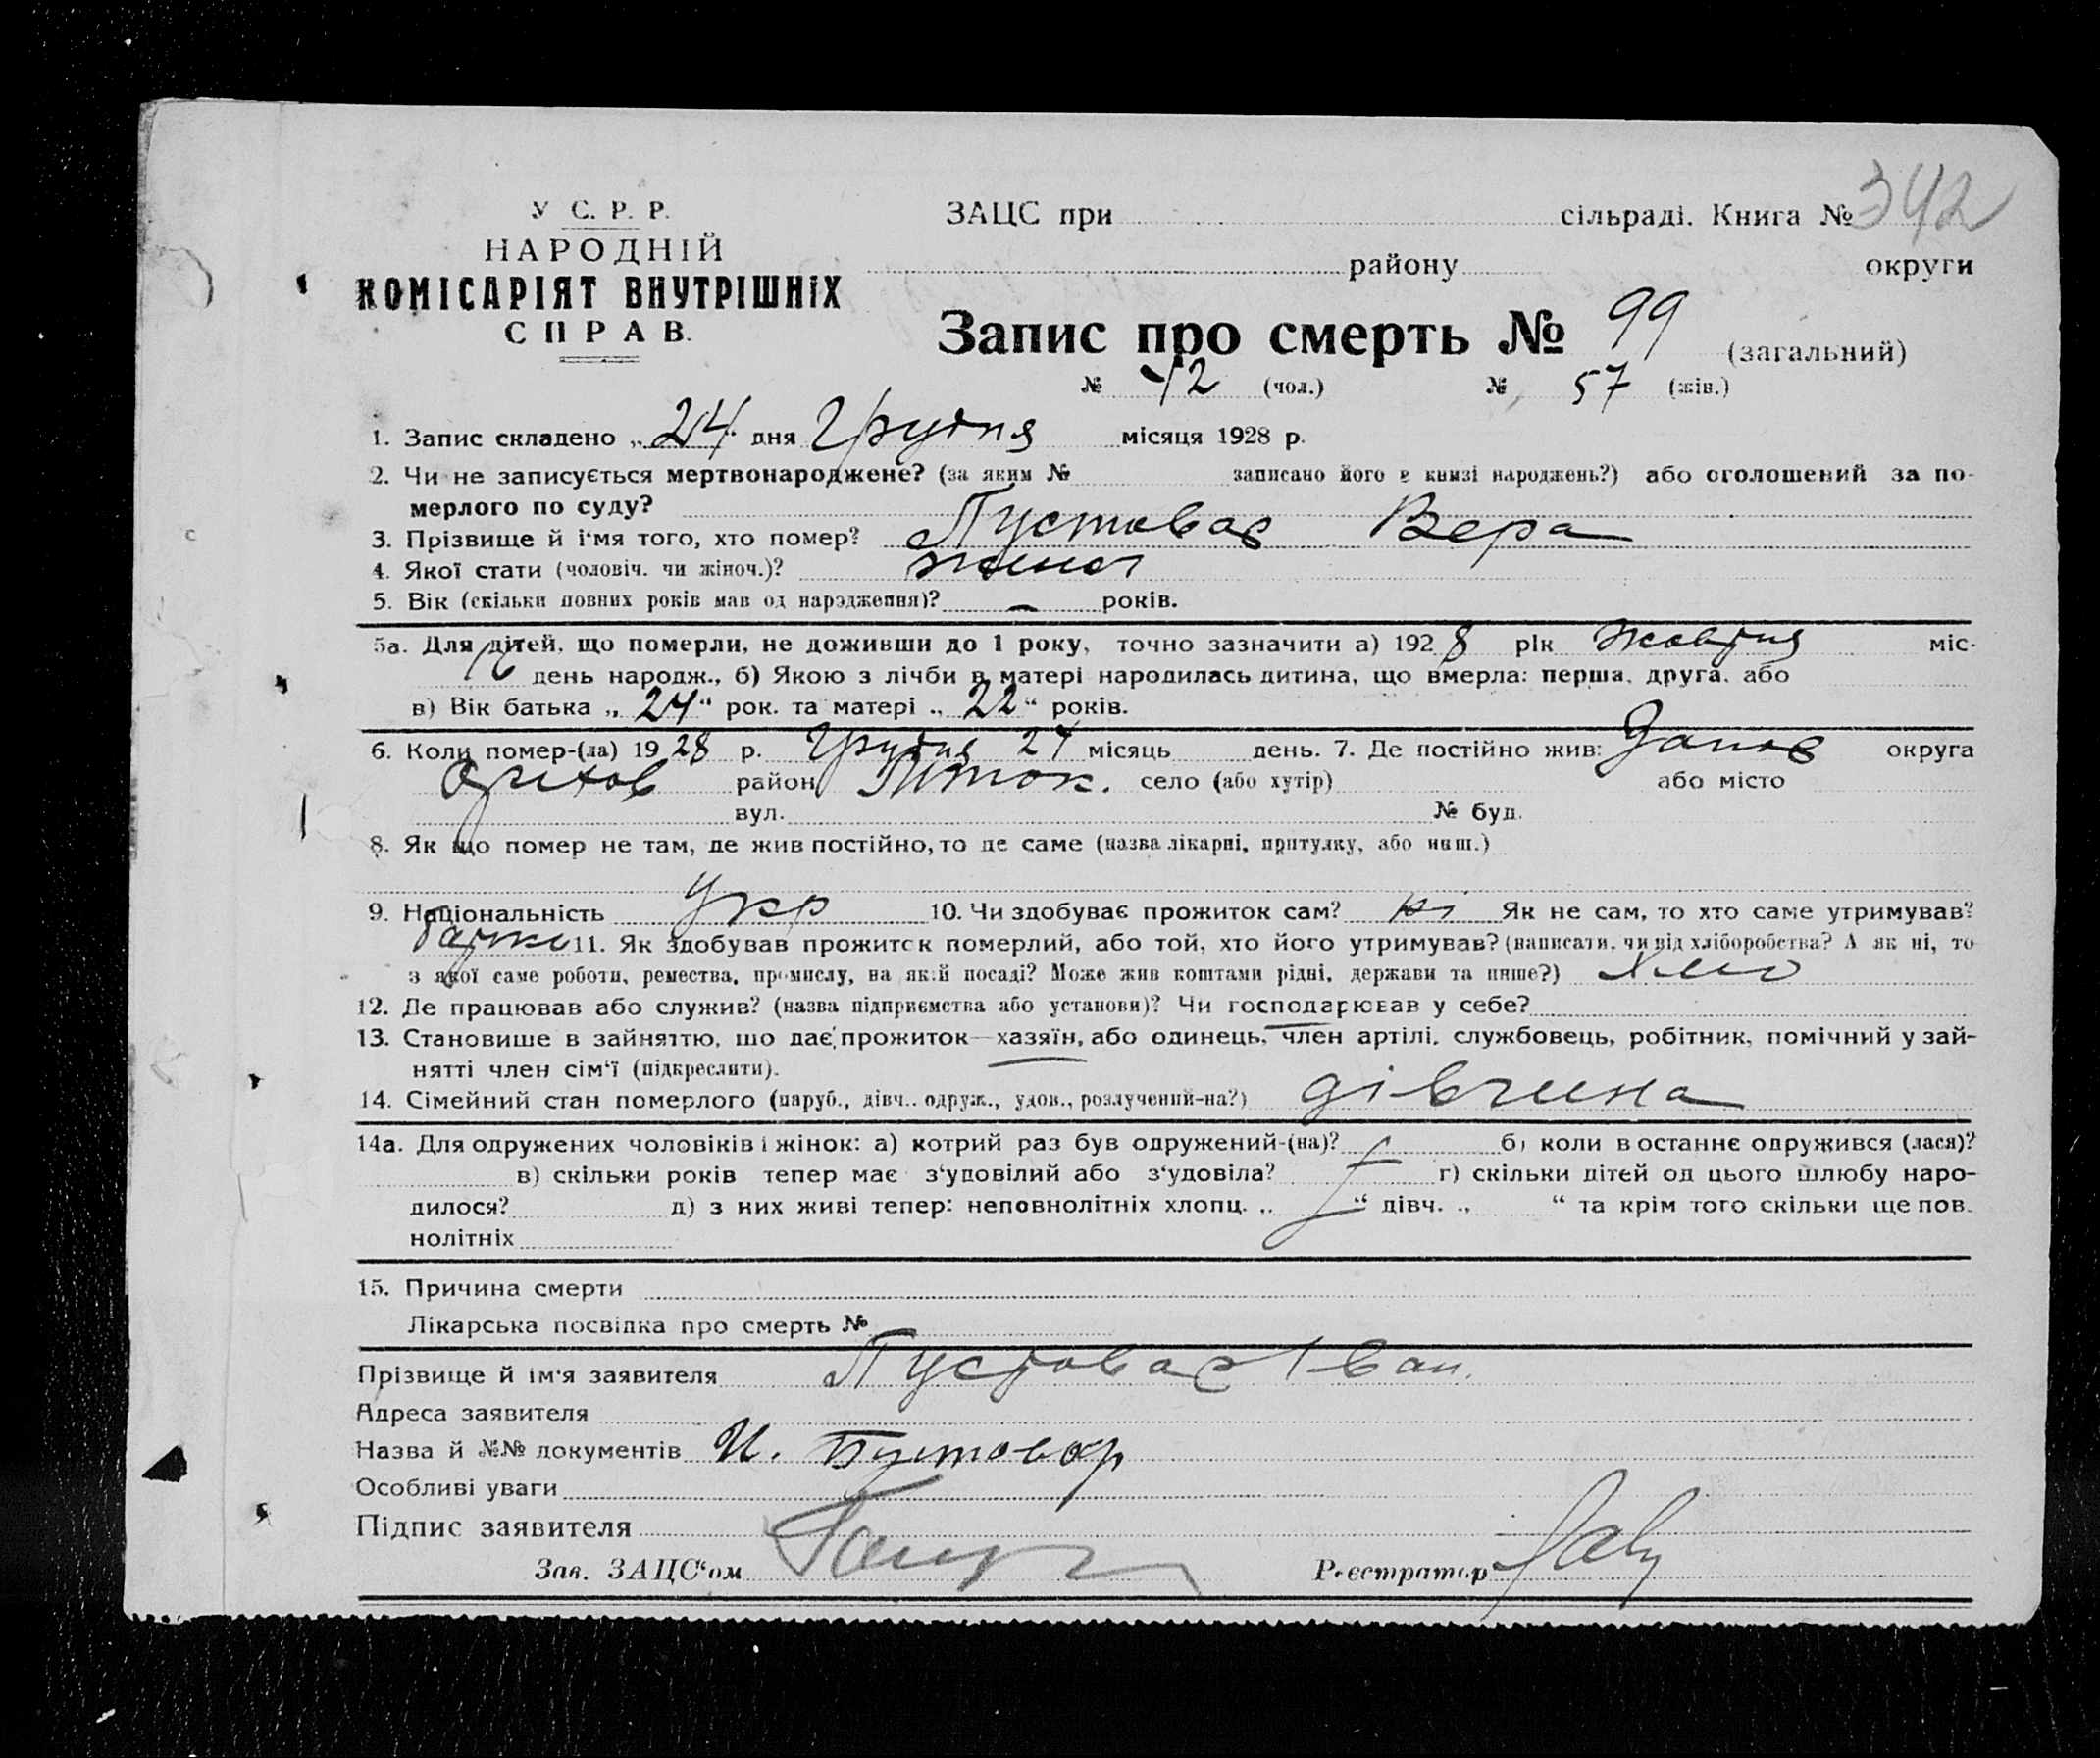 342
У С. Р. Р.
НАРОДНІЙ
КОМІСАРІЯТ ВНУТРІШНІХ
СПРАВ.
ЗАЦС при сільраді. Книга №
району округи
Запис про смерть № 99 (загальний)
№ 42 (чол.) № 57 (жін.)
1. Запис складено „24“ дня Грудня місяця 1928 р.
2. Чи не записується мертвонароджене? (за яким № записано його в книзі народжень?) або оголошений за по-
мерлого по суду?
3. Прізвище й і'мя того, хто помер? Пустовар Вера
4. Якої стати (чоловіч. чи жіноч.)?
5. Вік (скільки повних років мав од народження)? – років.
5а. Для дітей, що померли, не доживши до 1 року, точно зазначити а) 1928 рік Жовтня міс.
16 день народж., б) Якою з лічби в матері народилась дитина, що вмерла: перша, друга, або
в) Вік батька „24“ рок. та матері „22“ років.
6. Коли помер-(ла) 1928 р. Грудня 24 місяць день. 7. Де постійно жив: Запов округа
Оріхов район село (або хутір) або місто
вул. № буд.
8. Як що помер не там, де жив постійно, то де саме (назва лікарні, притулку, або инш.)
9. Національність Укр 10. Чи здобуває прожиток сам? ні Як не сам, то хто саме утримував?
11. Як здобував прожиток померлий, або той, хто його утримував? (написати, чи від хліборобства? А як ні, то
з якої саме роботи, ремества, промислу, на якій посаді? Може жив коштами рідні, держави та инше?)
12. Де працював або служив? (назва підприємства або установи)? Чи господарював у себе?
13. Становище в зайняттю, що дає прожиток—хазяїн, або одинець, член артілі, службовець, робітник, помічний у зай-
нятті член сім'ї (підкреслити).
14. Сімейний стан померлого (паруб., дівч., одруж., удов., розлучений-на?) дівчина
14а. Для одружених чоловіків і жінок: а) котрий раз був одружений-(на)? б) коли востаннє одружився (лася)?
в) скільки років тепер має з'уповілий або з'удовіла? г) скільки дітей од цього шлюбу наро-
дилося? д) з них живі тепер: неповнолітніх хлопц. „ “ дівч. „ “ та крім того скільки ще пов.
нолітніх
15. Причина смерти
Лікарська посвідка про смерть №
Прізвище й ім'я заявителя Пустовар Іван.
Адреса заявителя
Назва й №№ документів И. Бустовар
Особливі уваги
Підпис заявителя
Зав. ЗАЦС'ом Реєстратор